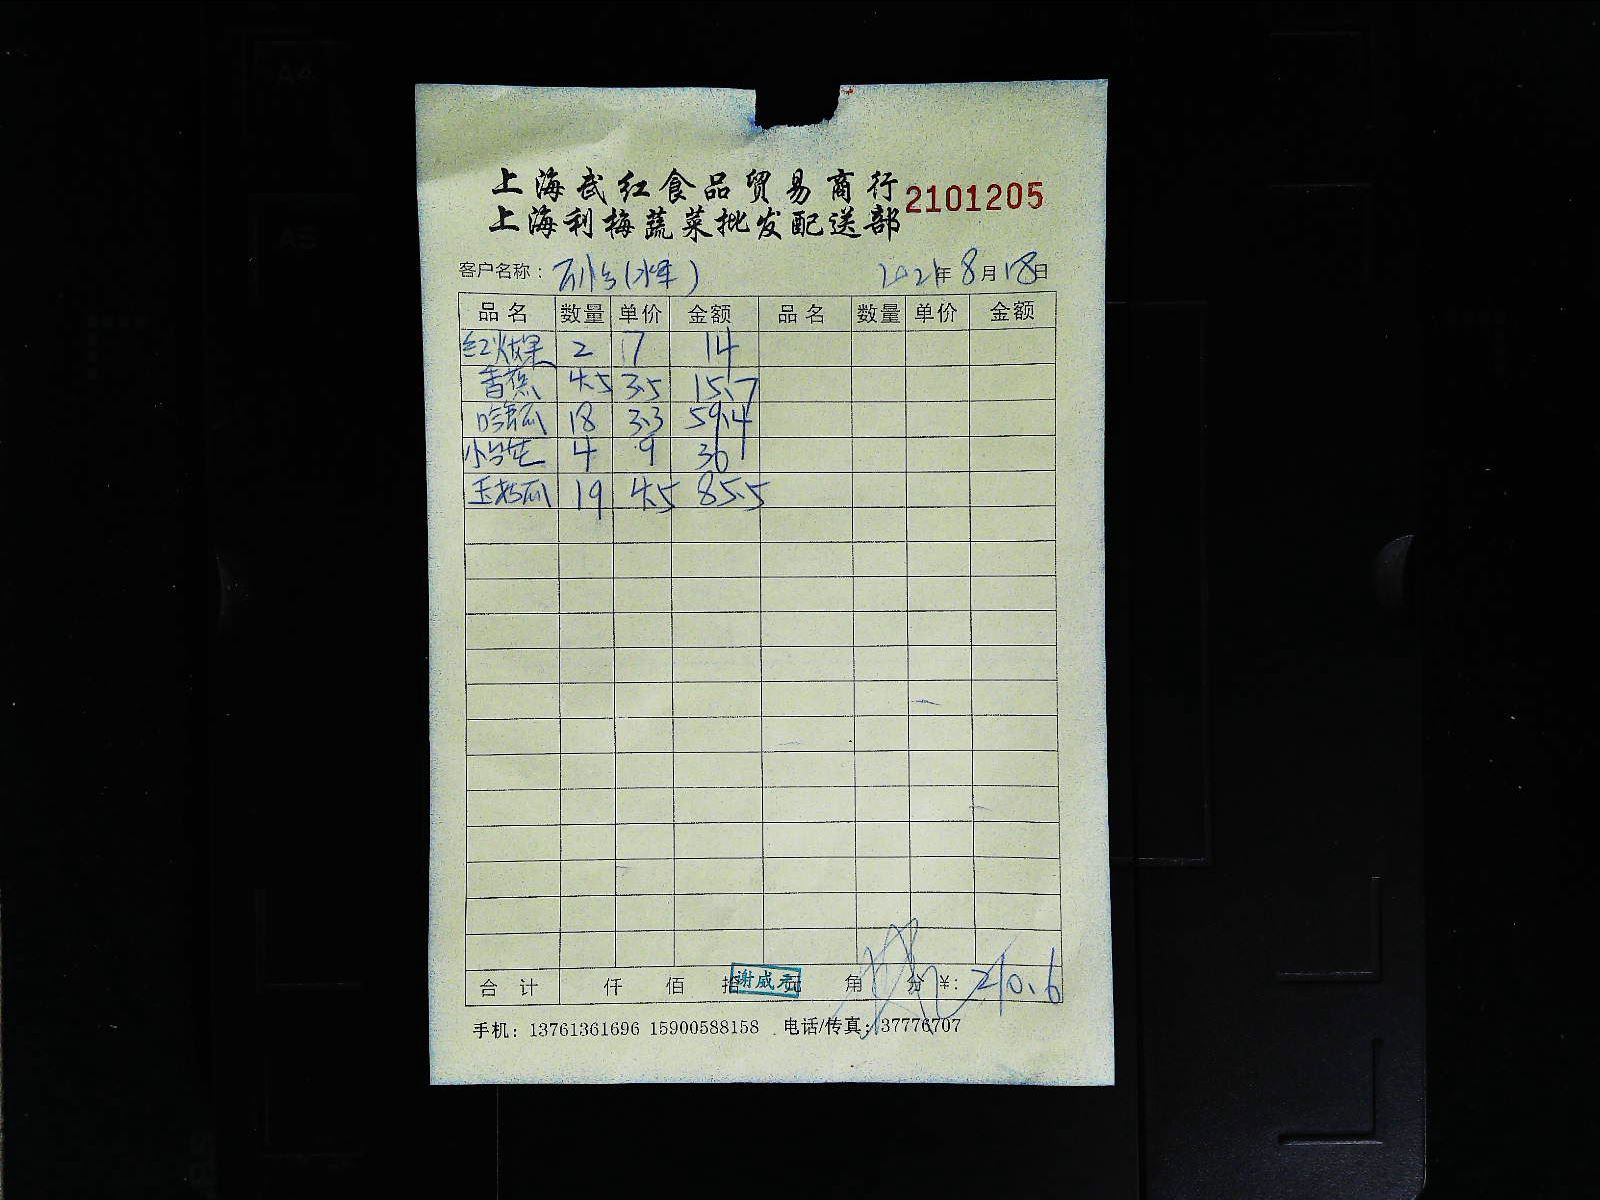 上海武红食品贸易商行
2101205
上海利梅蔬菜批发配送部
客户名称： 2021年8月18日
品名 数量 单价 金额 品名 数量 单价 金额
红火龙果 2 7 14
香蕉 4.5 3.5 15.7
哈密瓜 18 3.3 59.4
小台芒 4 9 36
玉菇瓜 19 4.5 85.5
合计 仟 佰 拾 元 角 分 ¥: 210.6
谢威元
手机：13761361696 15900588158 电话/传真：37776707